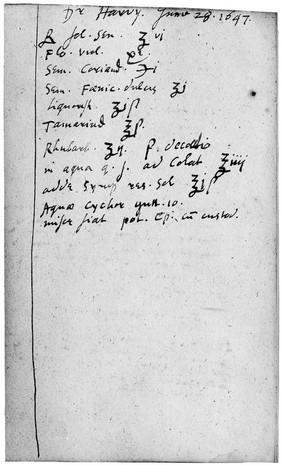 Dr Harvy. June 28. 1647.
℞ fol. Sen. ʒ vi
Flo. viol.
Sem. Coriand. ℈i
Sem. Fœnic. dulcis ʒi
Liquorish. ʒiß
Tamarind ʒß.
Rhubarb. ʒij. f. decoctio
in aqua q. s. ad Colat ℥iiij
adde Syrup res. Sol ℥iß
Aquæ Cychor gutt. 10.
misce fiat pot. Ep. cū custod.